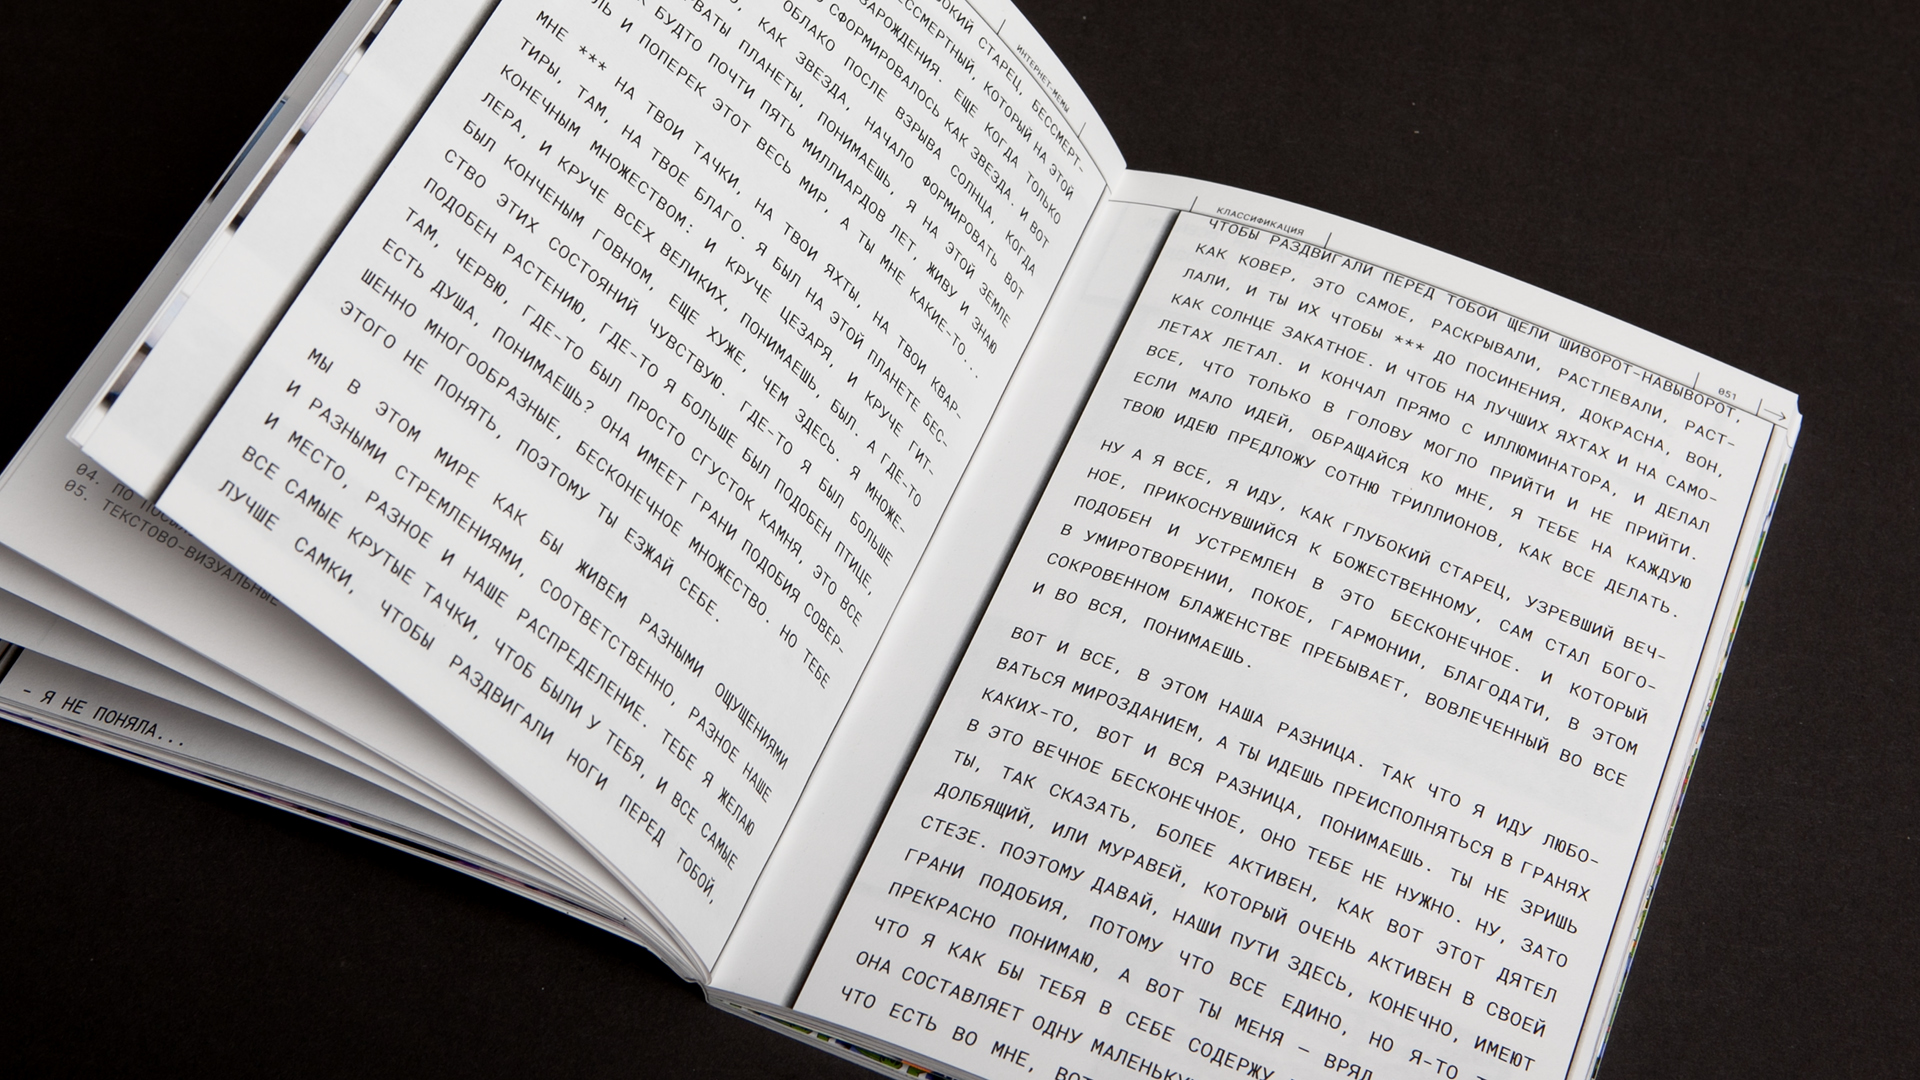 ИНТЕРНЕТ-МЕМЫ
СТАРЕЦ, БЕССМЕРТ-
БЕССМЕРТНЫЙ, КОТОРЫЙ НА ЭТОЙ
ЗАРОЖДЕНИЯ. ЕЩЕ КОГДА ТОЛЬКО
СФОРМИРОВАЛОСЬ КАК ЗВЕЗДА. И ВОТ
ОБЛАКО ПОСЛЕ ВЗРЫВА СОЛНЦА, КОГДА
КАК ЗВЕЗДА, НАЧАЛО ФОРМИРОВАТЬ ВОТ
ПЛАНЕТЫ, ПОНИМАЕШЬ, Я НА ЭТОЙ ЗЕМЛЕ
БУДТО ПОЧТИ ПЯТЬ МИЛЛИАРДОВ ЛЕТ, ЖИВУ И ЗНАЮ
И ПОПЕРЕК ЭТОТ ВЕСЬ МИР, А ТЫ МНЕ КАКИЕ-ТО...
МНЕ *** НА ТВОИ ТАЧКИ, НА ТВОИ ЯХТЫ, НА ТВОИ КВАР-
ТИРЫ, ТАМ, НА ТВОЕ БЛАГО. Я БЫЛ НА ЭТОЙ ПЛАНЕТЕ БЕС-
КОНЕЧНЫМ МНОЖЕСТВОМ: И КРУЧЕ ЦЕЗАРЯ, И КРУЧЕ ГИТ-
ЛЕРА, И КРУЧЕ ВСЕХ ВЕЛИКИХ, ПОНИМАЕШЬ, БЫЛ. А ГДЕ-ТО
БЫЛ КОНЧЕНЫМ ГОВНОМ, ЕЩЕ ХУЖЕ, ЧЕМ ЗДЕСЬ. Я МНОЖЕ-
СТВО ЭТИХ СОСТОЯНИЙ ЧУВСТВУЮ. ГДЕ-ТО Я БЫЛ БОЛЬШЕ
ПОДОБЕН РАСТЕНИЮ, ГДЕ-ТО Я БОЛЬШЕ БЫЛ ПОДОБЕН ПТИЦЕ,
ТАМ, ЧЕРВЮ, ГДЕ-ТО БЫЛ ПРОСТО СГУСТОК КАМНЯ, ЭТО ВСЕ
ЕСТЬ ДУША, ПОНИМАЕШЬ? ОНА ИМЕЕТ ГРАНИ ПОДОБИЯ СОВЕР-
ШЕННО МНОГООБРАЗНЫЕ, БЕСКОНЕЧНОЕ МНОЖЕСТВО. НО ТЕБЕ
ЭТОГО НЕ ПОНЯТЬ, ПОЭТОМУ ТЫ ЕЗЖАЙ СЕБЕ.
МЫ В ЭТОМ МИРЕ КАК БЫ ЖИВЕМ РАЗНЫМИ ОЩУЩЕНИЯМИ
И РАЗНЫМИ СТРЕМЛЕНИЯМИ, СООТВЕТСТВЕННО, РАЗНОЕ НАШЕ
И МЕСТО, РАЗНОЕ И НАШЕ РАСПРЕДЕЛЕНИЕ. ТЕБЕ Я ЖЕЛАЮ
ВСЕ САМЫЕ КРУТЫЕ ТАЧКИ, ЧТОБ БЫЛИ У ТЕБЯ, И ВСЕ САМЫЕ
ЛУЧШЕ САМКИ, ЧТОБЫ РАЗДВИГАЛИ НОГИ ПЕРЕД ТОБОЙ,
04. ПО
05. ТЕКСТОВО-ВИЗУАЛЬНЫЕ
- Я НЕ ПОНЯЛА...
КЛАССИФИКАЦИЯ
051
ЧТОБЫ РАЗДВИГАЛИ ПЕРЕД ТОБОЙ ЩЕЛИ ШИВОРОТ-НАВЫВОРОТ,
КАК КОВЕР, ЭТО САМОЕ, РАСКРЫВАЛИ, РАСТЛЕВАЛИ, РАСТ-
ЛАЛИ, И ТЫ ИХ ЧТОБЫ *** ДО ПОСИНЕНИЯ, ДОКРАСНА, ВОН,
КАК СОЛНЦЕ ЗАКАТНОЕ. И ЧТОБ НА ЛУЧШИХ ЯХТАХ И НА САМО-
ЛЕТАХ ЛЕТАЛ. И КОНЧАЛ ПРЯМО С ИЛЛЮМИНАТОРА, И ДЕЛАЛ
ВСЕ, ЧТО ТОЛЬКО В ГОЛОВУ МОГЛО ПРИЙТИ И НЕ ПРИЙТИ.
ЕСЛИ МАЛО ИДЕЙ, ОБРАЩАЙСЯ КО МНЕ, Я ТЕБЕ НА КАЖДУЮ
ТВОЮ ИДЕЮ ПРЕДЛОЖУ СОТНЮ ТРИЛЛИОНОВ, КАК ВСЕ ДЕЛАТЬ.
НУ А Я ВСЕ, Я ИДУ, КАК ГЛУБОКИЙ СТАРЕЦ, УЗРЕВШИЙ ВЕЧ-
НОЕ, ПРИКОСНУВШИЙСЯ К БОЖЕСТВЕННОМУ, САМ СТАЛ БОГО-
ПОДОБЕН И УСТРЕМЛЕН В ЭТО БЕСКОНЕЧНОЕ. И КОТОРЫЙ
В УМИРОТВОРЕНИИ, ПОКОЕ, ГАРМОНИИ, БЛАГОДАТИ, В ЭТОМ
СОКРОВЕННОМ БЛАЖЕНСТВЕ ПРЕБЫВАЕТ, ВОВЛЕЧЕННЫЙ ВО ВСЕ
И ВО ВСЯ, ПОНИМАЕШЬ.
ВОТ И ВСЕ, В ЭТОМ НАША РАЗНИЦА. ТАК ЧТО Я ИДУ ЛЮБО-
ВАТЬСЯ МИРОЗДАНИЕМ, А ТЫ ИДЕШЬ ПРЕИСПОЛНЯТЬСЯ В ГРАНЯХ
КАКИХ-ТО, ВОТ И ВСЯ РАЗНИЦА, ПОНИМАЕШЬ. ТЫ НЕ ЗРИШЬ
В ЭТО ВЕЧНОЕ БЕСКОНЕЧНОЕ, ОНО ТЕБЕ НЕ НУЖНО. НУ, ЗАТО
ТЫ, ТАК СКАЗАТЬ, БОЛЕЕ АКТИВЕН, КАК ВОТ ЭТОТ ДЯТЕЛ
ДОЛБЯЩИЙ, ИЛИ МУРАВЕЙ, КОТОРЫЙ ОЧЕНЬ АКТИВЕН В СВОЕЙ
СТЕЗЕ. ПОЭТОМУ ДАВАЙ, НАШИ ПУТИ ЗДЕСЬ, КОНЕЧНО, ИМЕЮТ
ГРАНИ ПОДОБИЯ, ПОТОМУ ЧТО ВСЕ ЕДИНО, НО Я-ТО
ПРЕКРАСНО ПОНИМАЮ, А ВОТ ТЫ МЕНЯ – ВРЯД
ЧТО Я КАК БЫ ТЕБЯ В СЕБЕ СОДЕРЖУ
ОНА СОСТАВЛЯЕТ ОДНУ МАЛЕНЬКУЮ
ЧТО ЕСТЬ ВО МНЕ, ВОТ